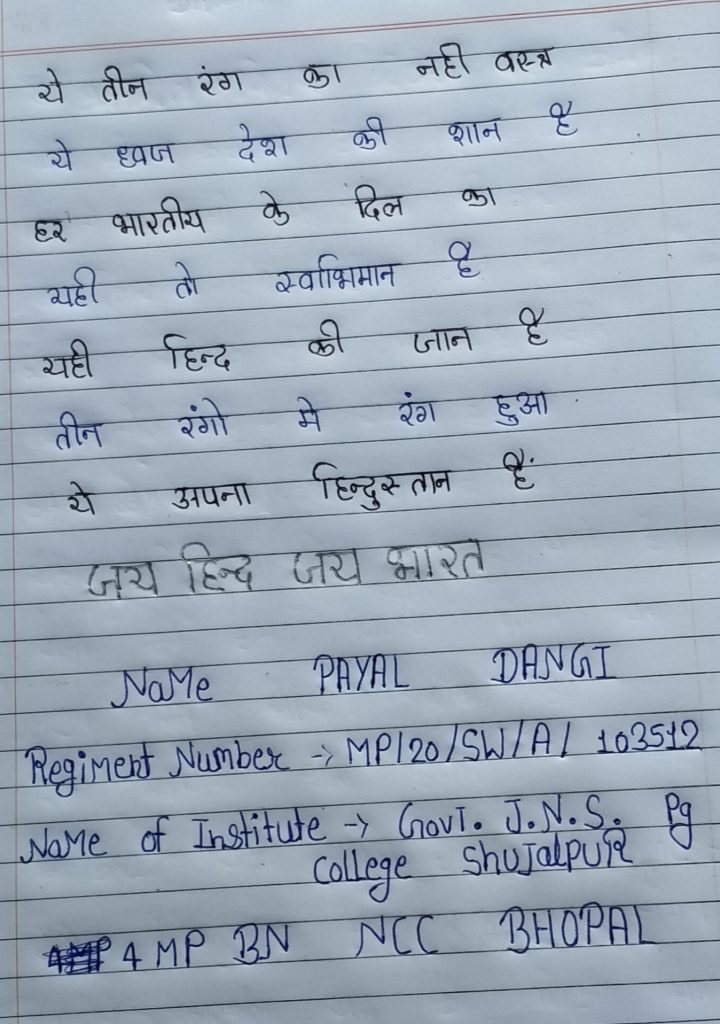 ये तीन रंग का नही वस्त्र
ये ध्वज देश की शान है
हर भारतीय के दिल का
यही तो स्वाभिमान है
यही हिन्द की जान है
तीन रंगो मे रंग हुआ
ये अपना हिन्दुस्तान हैं
जय हिन्द जय भारत
NaMe PAYAL DANGI
Regiment Number → MP/20/SW/A/ 103512
NaMe of Institute → Govt. J.N.S. Pg
College Shujalpur
4 MP BN NCC BHOPAL